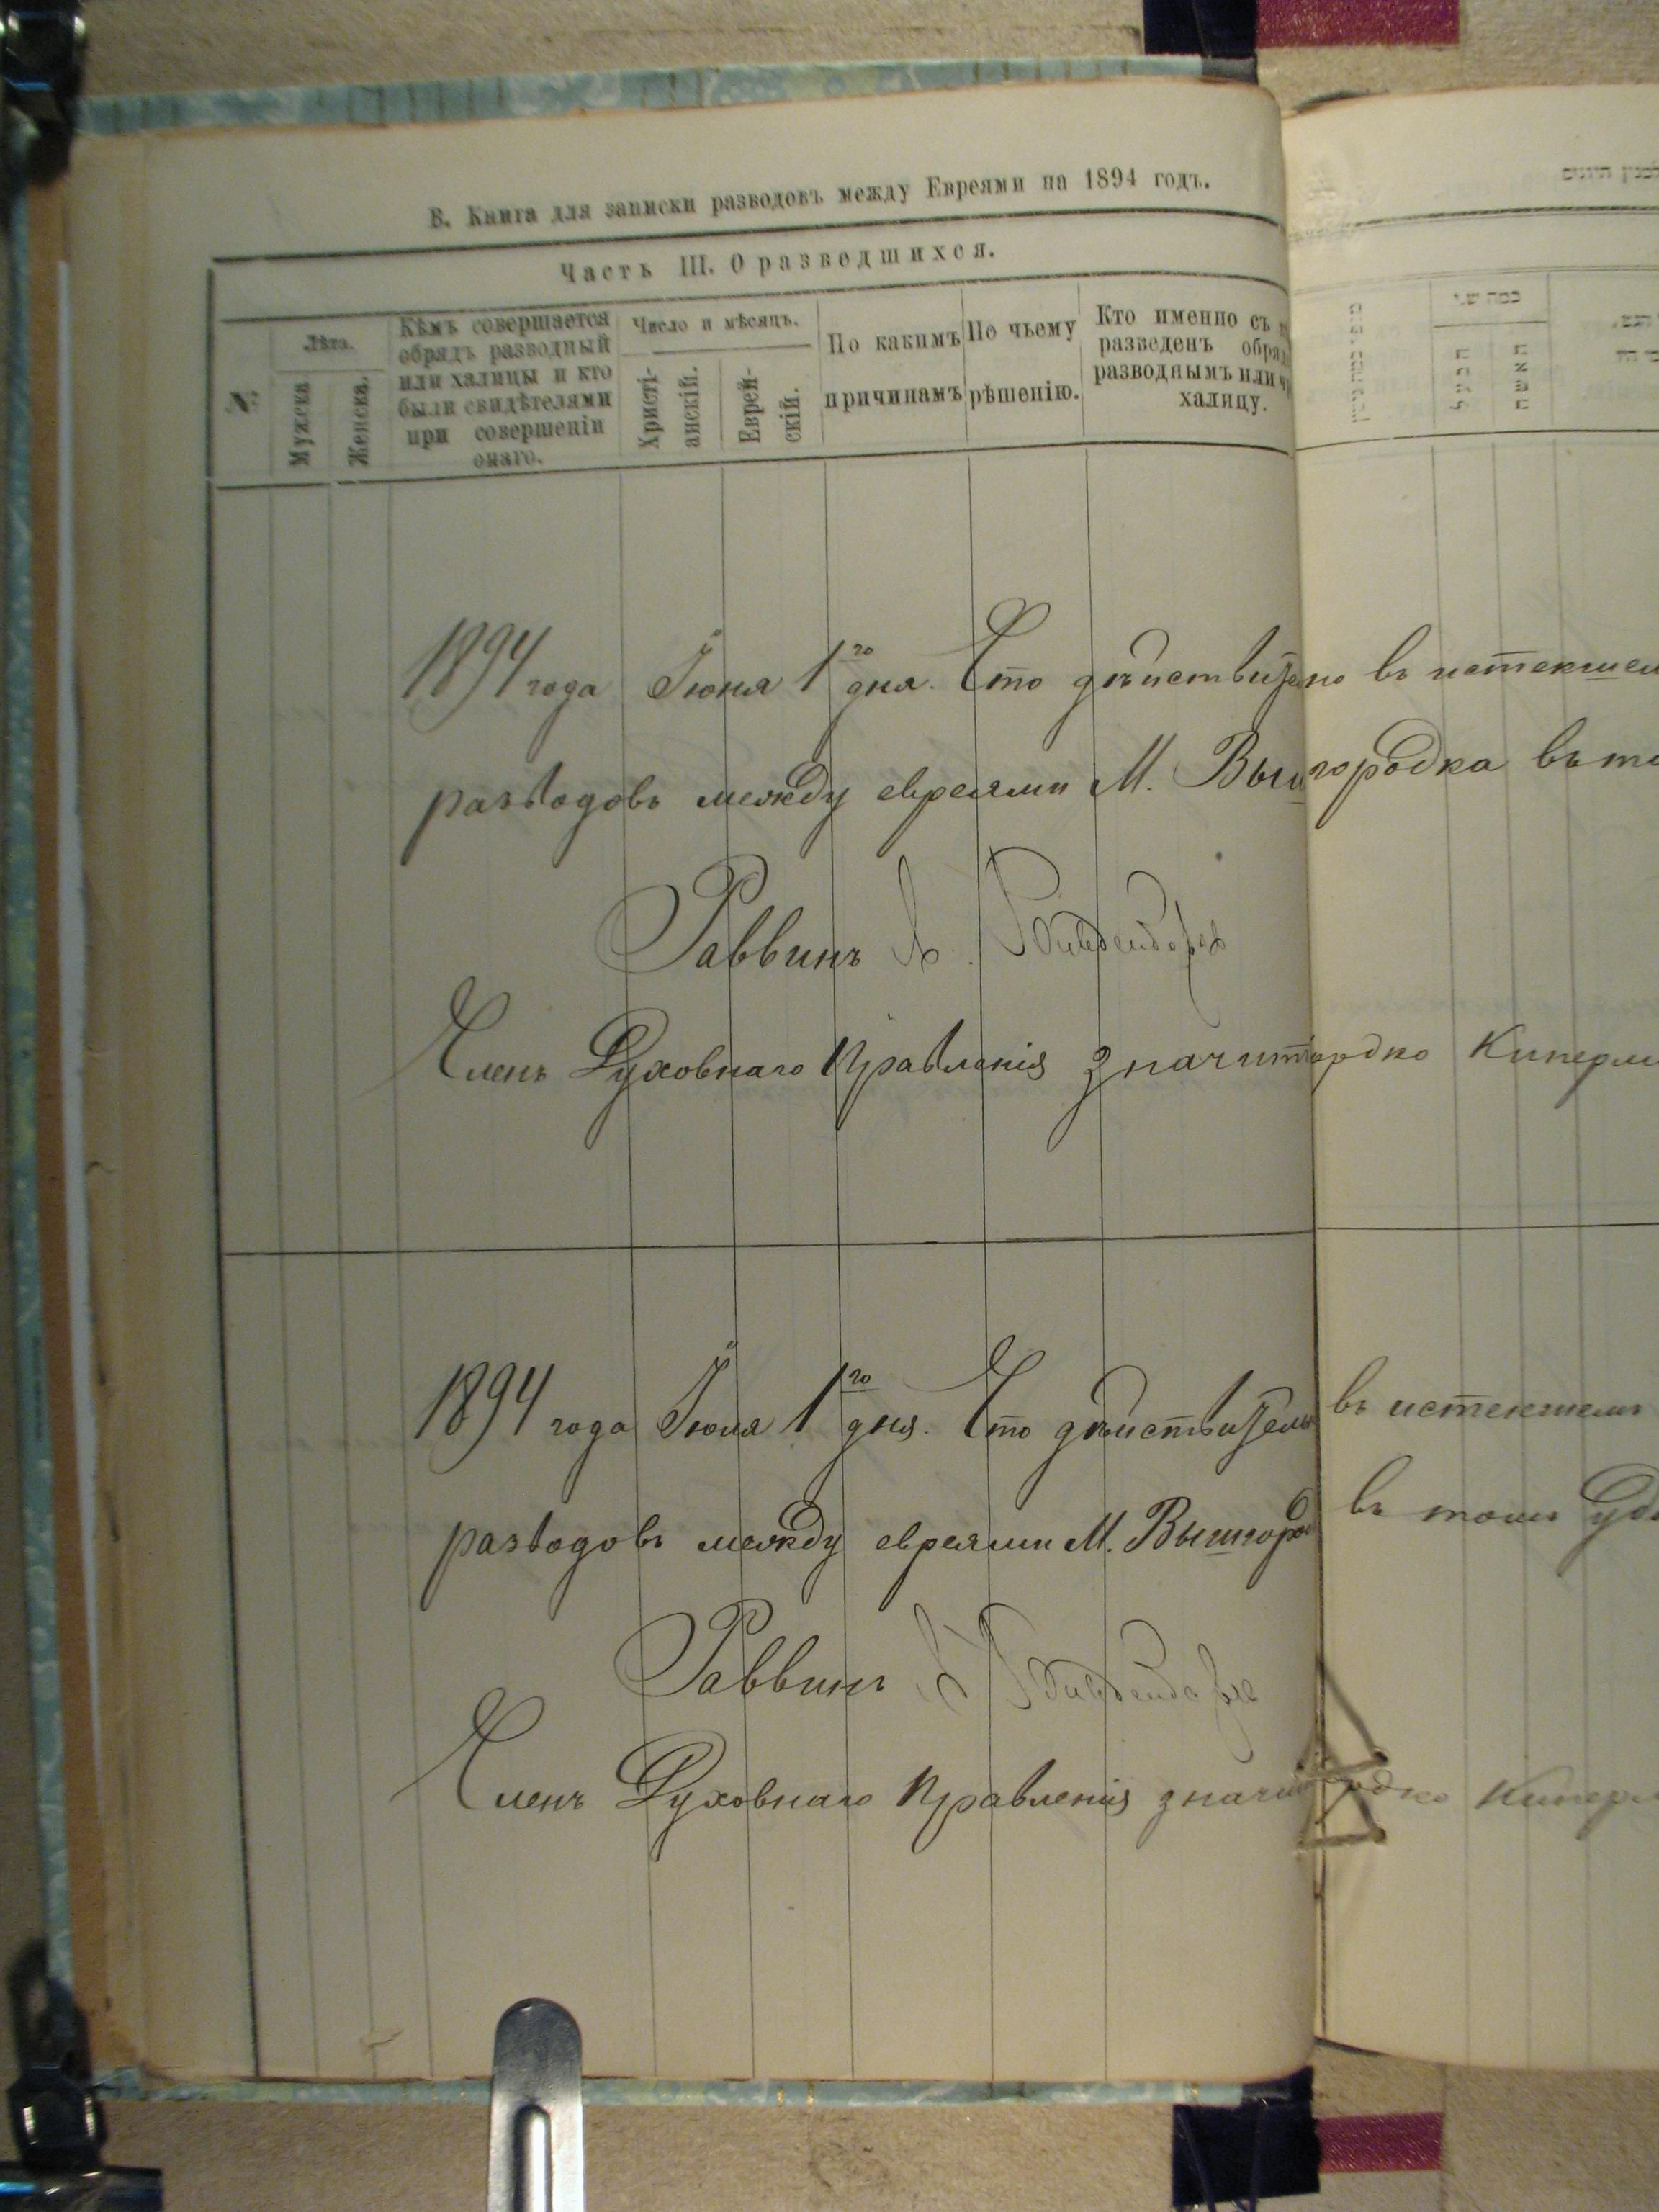 В. Книга для записки разводовъ между Евреями на 1894 годъ.
Часть III. О разведшихся.
№
Лѣта.
Мужска
Женска.
Кѣмъ совершается
обрядъ разводный
или халицы и кто
были свидѣтелями
при совершеніи
онаго.
Число и мѣсяцъ.
Христі-
анскій.
Еврей-
скій.
По какимъ
причинамъ
По чьему
рѣшенію.
Кто именно съ
разведенъ обря
разводнымъ или
халицу.
כמה שני
הבעל
האשה
1894 года Іюня 1го дня. Что дѣйствительно въ истекшем
разводовъ между евреями М. Вышгородка въ то
Раввинъ
Членъ Духовнаго Правленія Значитъ Мордко Киперм
1894 года Іюля 1го дня. Что дѣйствительн въ истекшемъ
разводовъ между евреями М. Вышгород въ томъ Удо
Раввинъ
Членъ Духовнаго Правленія значит Мордко Киперм